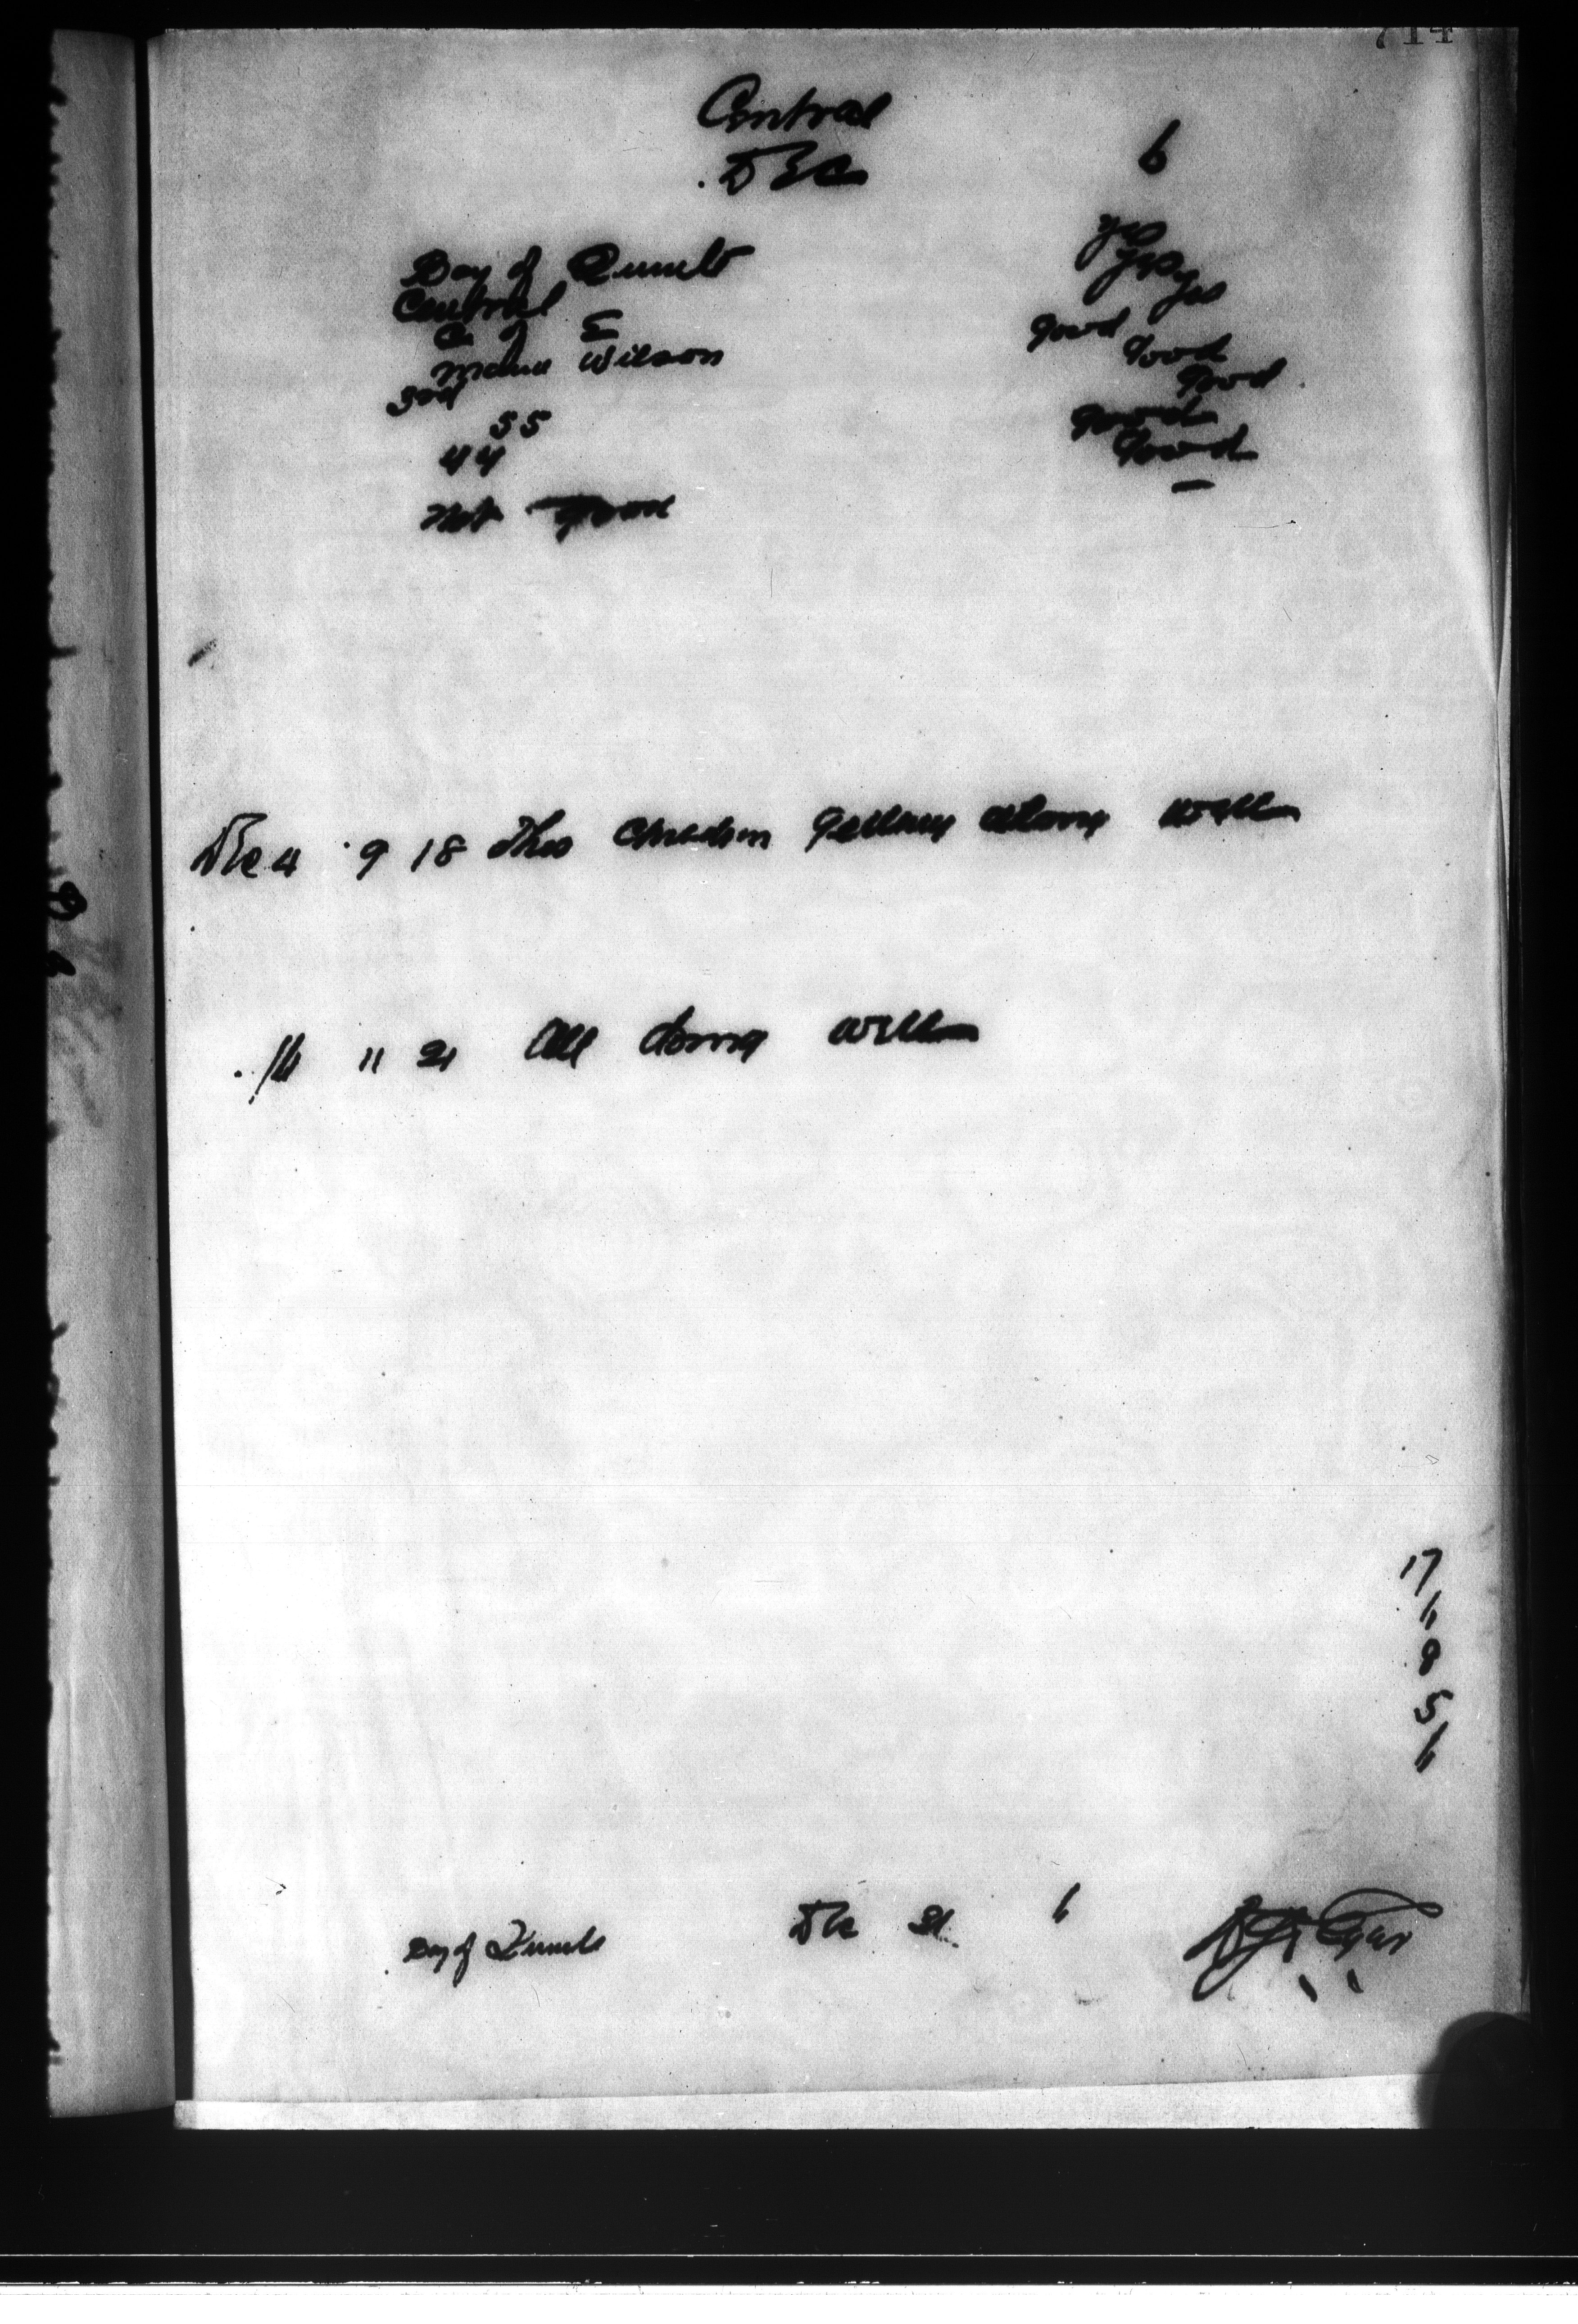 714
Central
Dec
6
Bay of Quinte
yes
yes
yes
Central
C of E
Good
Wilson
Good
Good
3rd
55
Good
44
Good
Not Good
Dec 4 9 18 Children Getting along well
16 11 21 All doing well
17
8
5
Bay of Quinte Dec 31